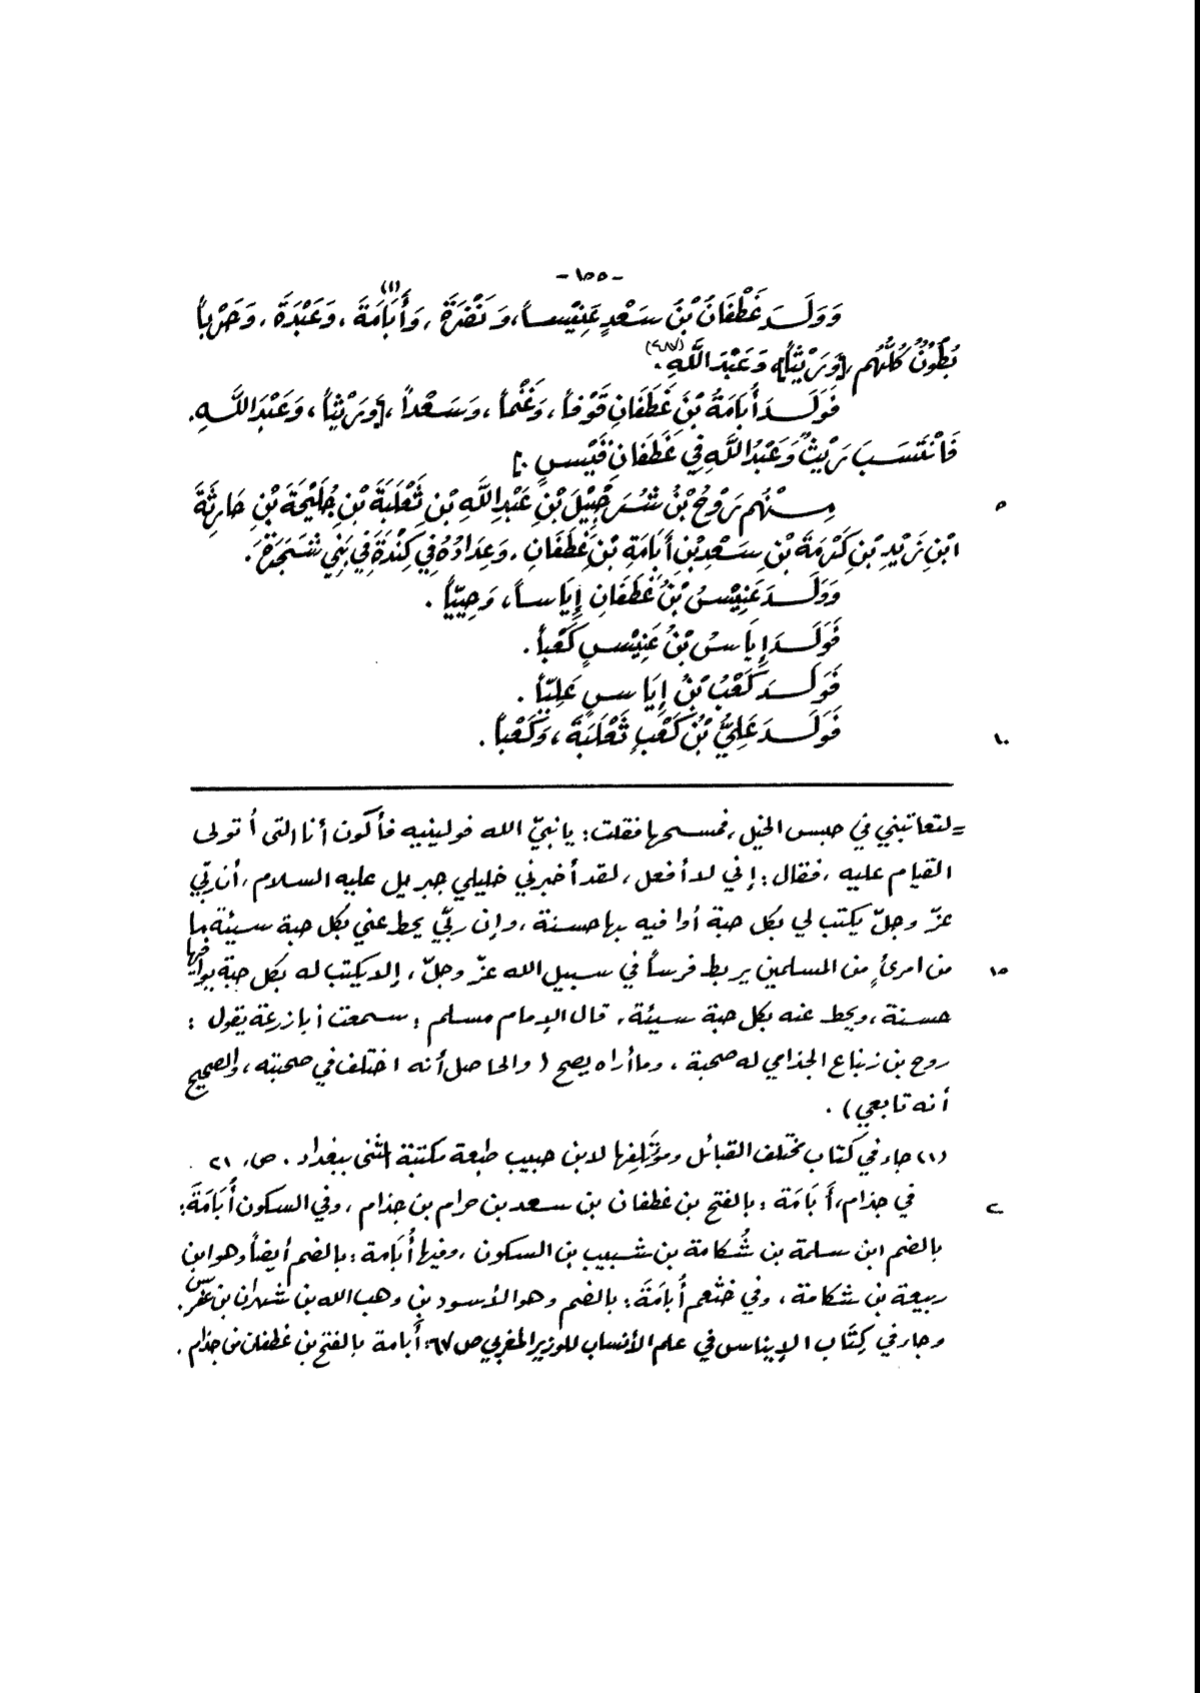 -١٥٥-
وَوَلَـدَ غَطْفَانُ بْنُ سَعْدٍ عَنِيْساً، وَنَضْرَةَ، وَأَبَامَةَ(١)، وَعَبْدَةَ، وَحَرْباً
بُطُوْنٌ كُلُّهُم، [وَرَيْثاً] وَعَبْدَ اللَّهِ.
فَوَلَـدَ أَبَامَةُ بْنُ غَطَفَانِ قَوْفاً، وَغَنْماً، وَسَعْداً، [وَرَيْثاً، وَعَبْدَاللَّـهِ.
فَانْتَسَبَ رَيْثٌ وَعَبْدُ اللَّهِ فِي غَطَفَانِ قَيْسٍ.]
مِـنْهُم رَوْحُ بْنُ شُرَحْبِيْلَ بْنِ عَبْدِ اللَّهِ بْنِ ثَعْلَبَةَ بْنِ جُلَيْحَةَ بْنِ حَارِثَةَ
٥
ابْنِ زَيْدِ بْنِ كَرَمَةَ بْنِ سَعْدِ بْنِ أَبَامَةِ بْنِ غَطَفَانِ، وَعِدَادُهُ فِي كِنْدَةَ فِي بَنِي شَجَرَةَ.
وَوَلَـدَ عَنِيْسُ بْنُ غَطَفَانِ إِيَاساً، وَحِيَيّاً.
فَوَلَـدَ إِيَاسُ بْنُ عَنِيْسٍ كَعْباً.
فَوَلَـدَ كَعْبُ بْنُ إِيَاسٍ عَلِيّاً.
فَوَلَـدَ عَلِيُّ بْنُ كَعْبٍ ثَعْلَبَةَ، وَكَعْباً.
١٠
= لتعاتبني في حبس الخيل، فمسحها فقلت: يا نبيّ الله فولينيه فأكون أنا التى أتولى
القيام عليه، فقال: إني لا أفعل، لقد أخبرني خليلي جبريل عليه السلام، أن ربّي
عزّ وجلّ يكتب لي بكل حبة أوافيه بها حسنة، وإن ربّي يحط عني بكل حبة سيئة ما
من امرئٍ من المسلمين يربط فرساً في سبيل الله عزّ وجلّ، إلا يكتب له بكل حبة يوافيها
١٥
حسنة، ويحط عنه بكل حبة سيئة، قال الإمام مسلم: سمعت أبا زرعة يقول:
روح بن زنباع الجذامي له صحبة، وما أراه يصح (والحاصل أنه اختلف في صحبته، والصحيح
أنه تابعي).
(١) جاء في كتاب مختلف القبائل ومؤتَلِفِها لابن حبيب طبعة مكتبة المثنى ببغداد. ص، ٢١
في جذام، أَبَامَة: بالفتح بن غطفان بن سعد بن حرام بن جذام، وفي السكون أُبَامَةَ:
٢
بالضم ابن سلمة بن شُكامة بن شبيب بن السكون، وفيها أُبَامة: بالضم أيضاً وهو ابن
ربيعة بن شكامة، وفي خثعم أُبامَةَ: بالضم وهو الأسود بن وهب الله بن شهران بن عفرس.
وجاء في كِتَاب الإيناس في علم الأنساب للوزير المغربي ص ٦٧: أَبامة بالفتح بن غطفان من جذام.